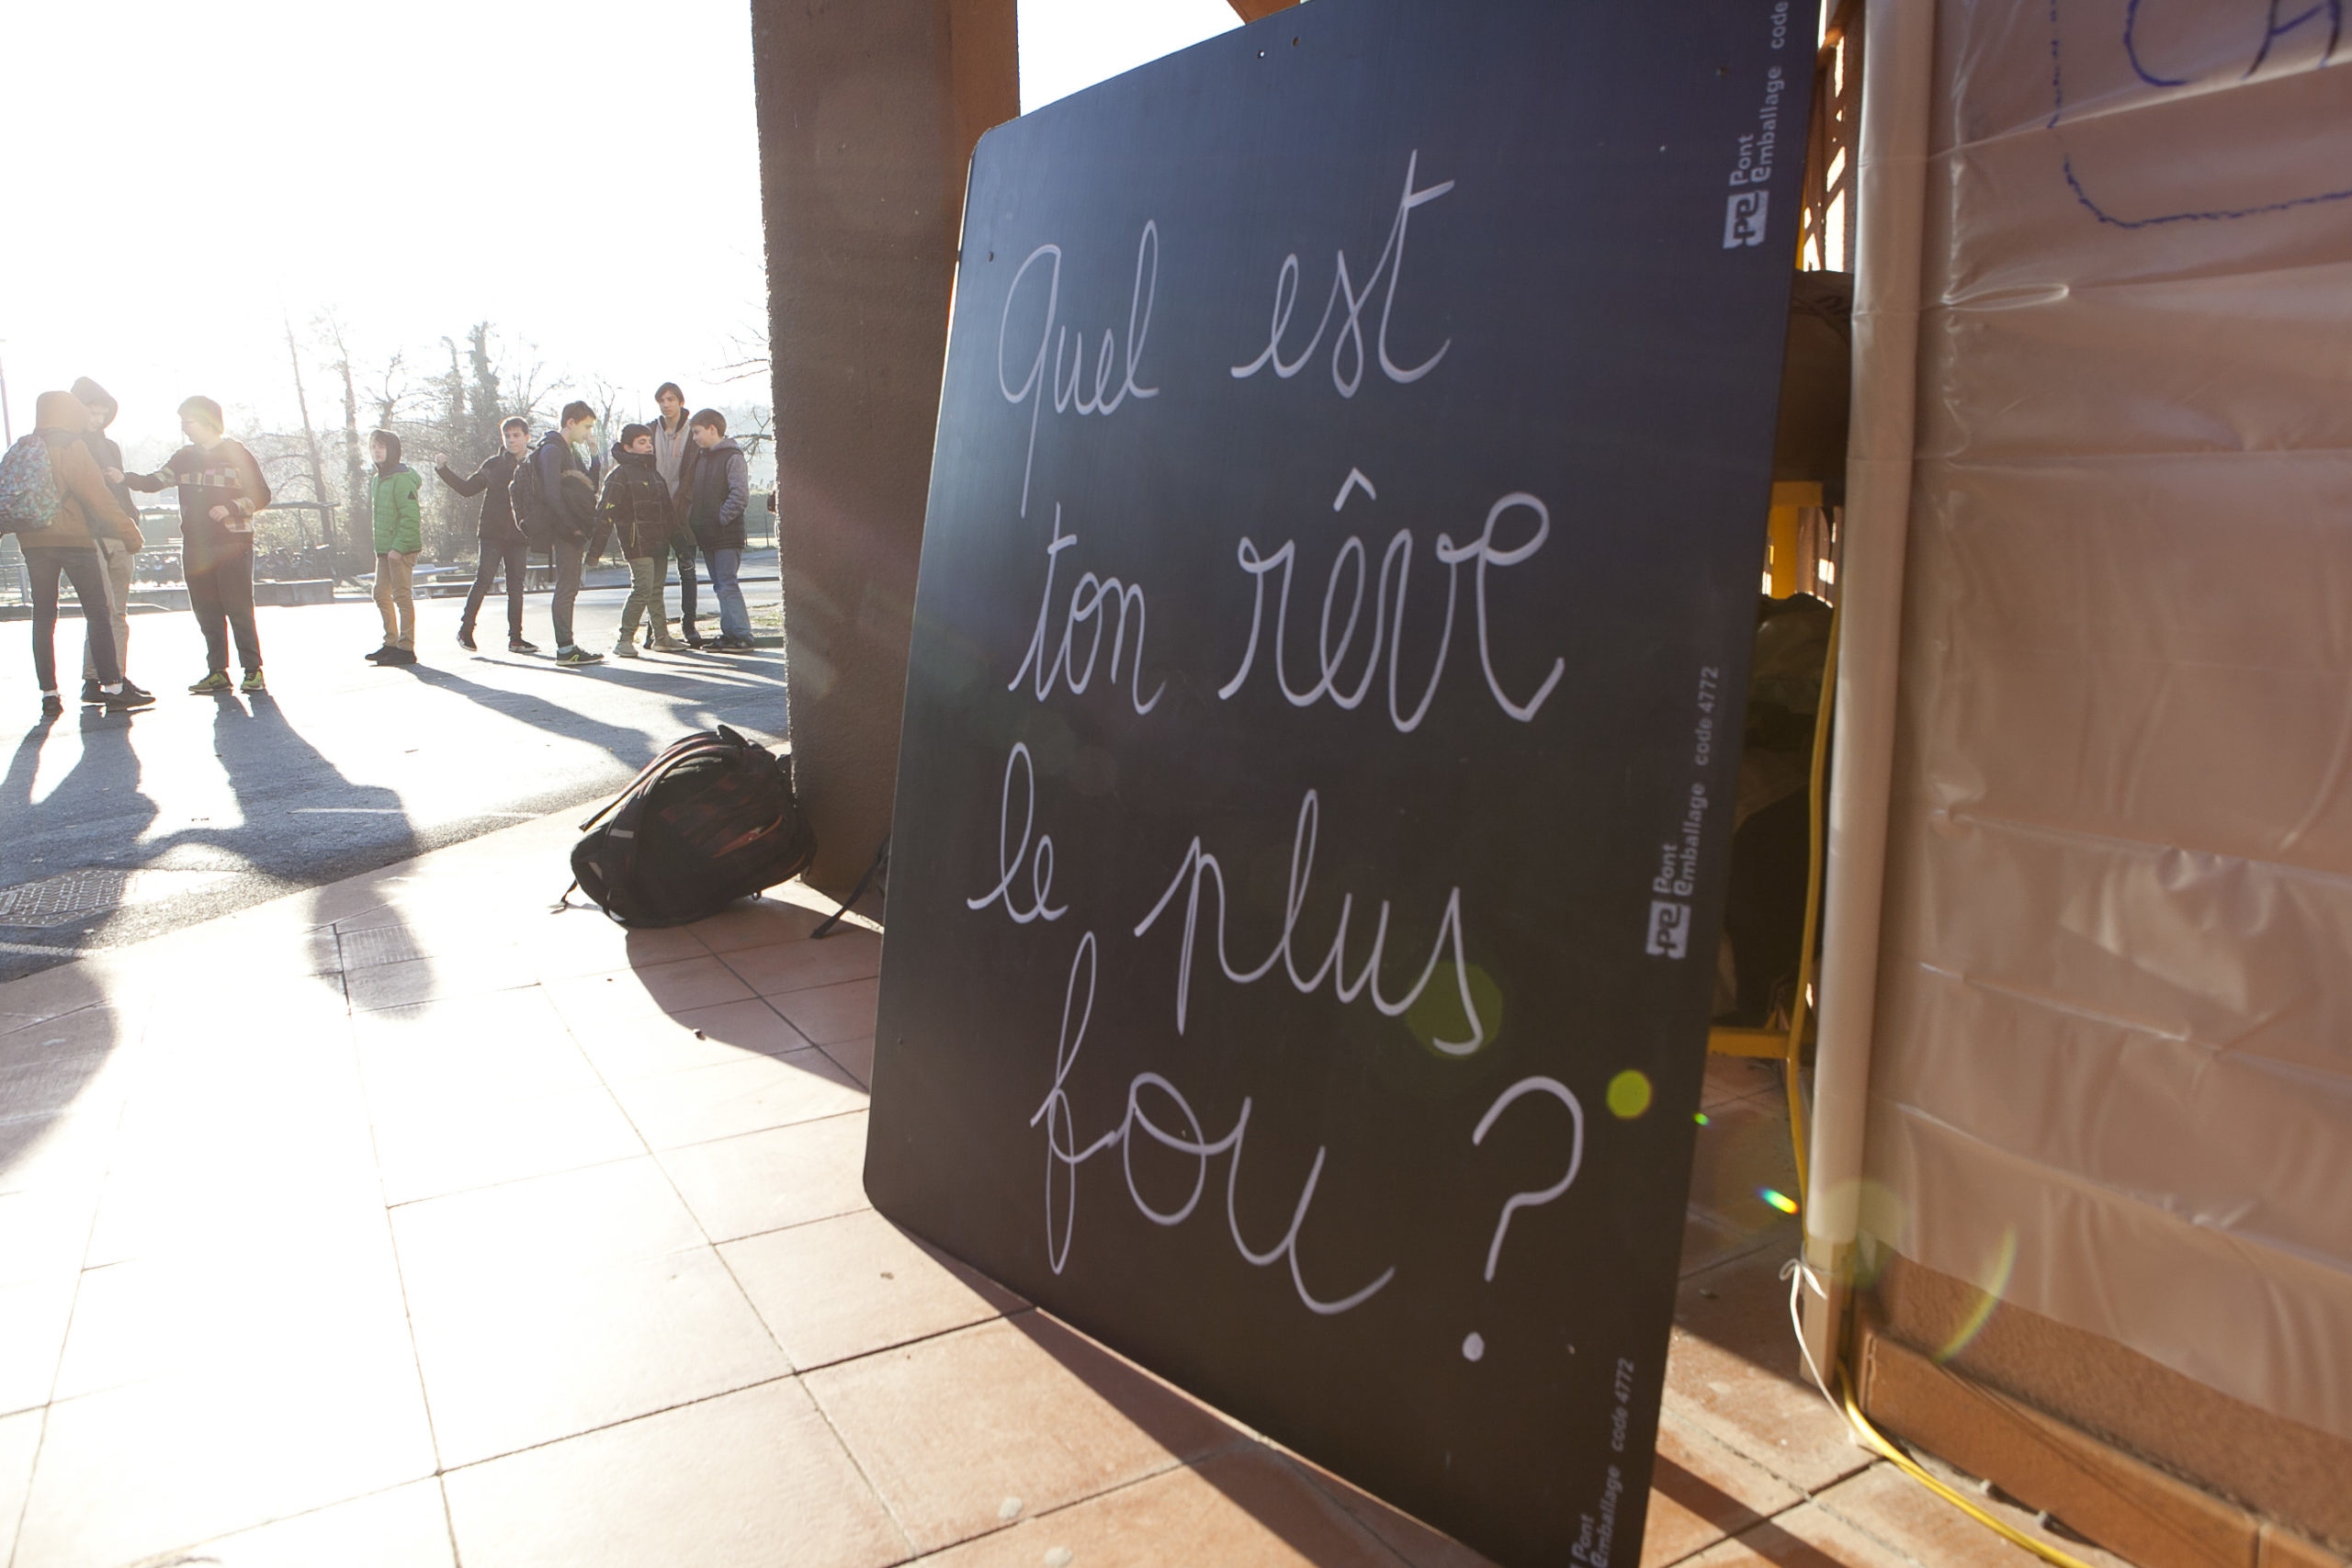 Quel est
ton rêve
le plus
fou ?
Pont
emballage code
pe
Pont
emballage code 4772
pe
Pont
emballage code 4772